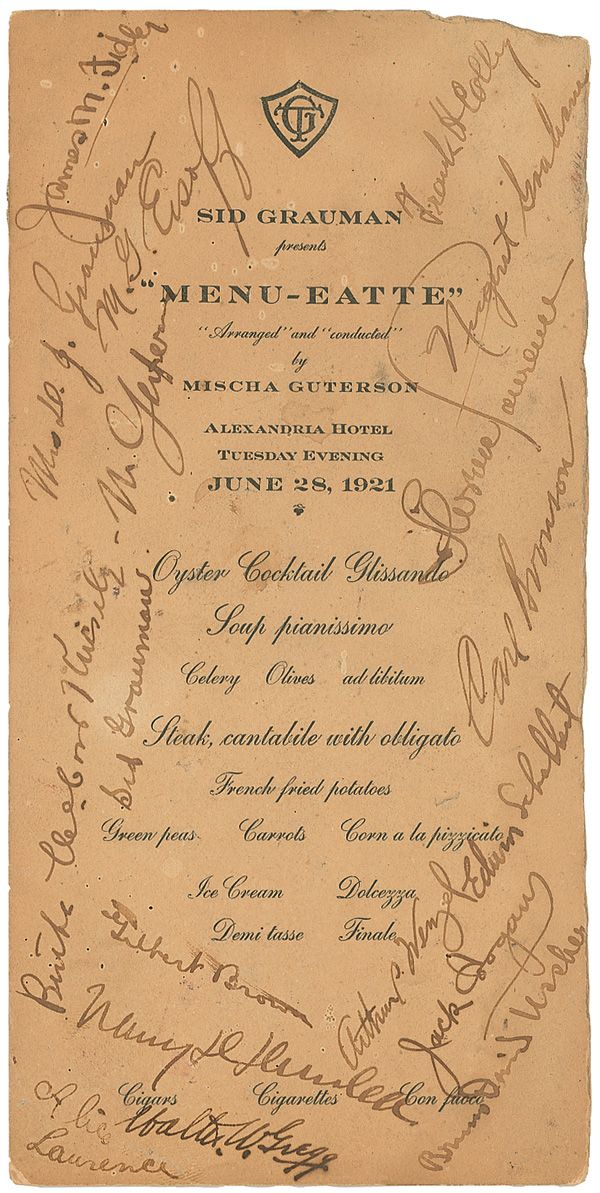 SID GRAUMAN
presents
"MENU-EATTE"
"Arranged" and "conducted"
by
MISCHA GUTERSON
ALEXANDRIA HOTEL
TUESDAY EVENING
JUNE 28, 1921
Oyster Cocktail Glissando
Soup pianissimo
Celery Olives ad libitum
Steak, cantabile with obligato
French fried potatoes
Green peas Carrots Corn a la pizzicato
Ice Cream Dolcezza
Demi tasse Finale
Cigars Cigarettes Con fuoco
James M. Fidler
Mrs D. J. Grauman
M. G.
Sid Grauman
Gilbert Brown
Alice Laurence
Walter W. Gregg
Frank H Colby
Florence Lawrence
Carl Bronson
Edwin Schallert
Arthur Wenzel
Jack Hogan
Bruno David Ussher